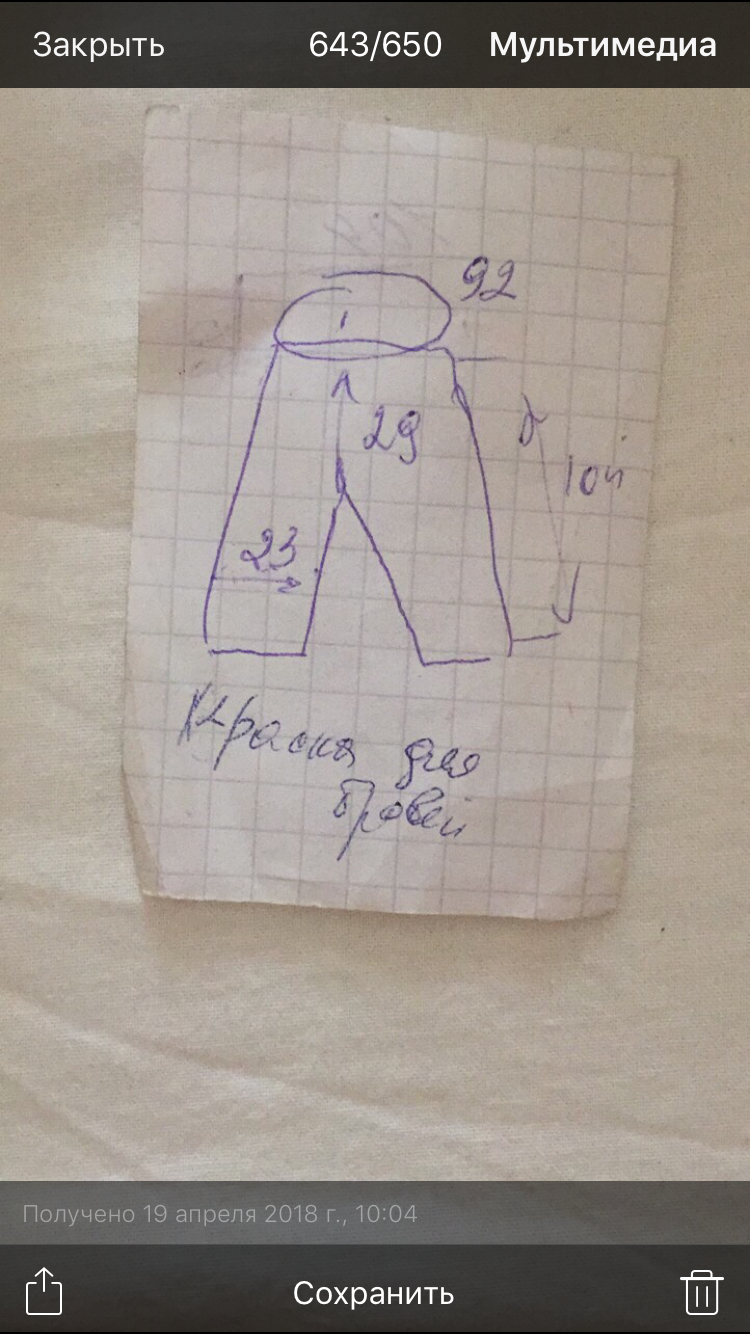 Закрыть 643/650 Мультимедиа
92
29
23
Краска для
бровей
Получено 19 апреля 2018 г., 10:04
Сохранить